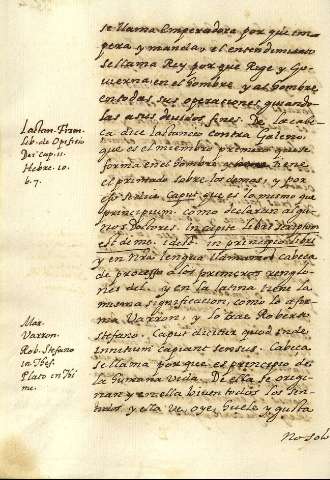 se llama Emperadora por que im
pera y manda, y el entendimiento
se llama Rey por que Rege y Go
vierna, en el hombre y al hombre
en todas sus operaciones guiando
las a sus devidos fines. De la cabe
ca dice lactancio contra Galeno,
que es el miembro primero que se
forma en el hombre tiene
el primado sobre los demas, y por
esso se dice Caput que es lo mismo que
principium como declaran algu
nos Doctores. In capite libri scriptum
est de me. idest. in principio libri
y en nra lengua llamamos cabeca
de processo a los primeros renglo
nes del. y en la latina tiene la
misma significacion, como lo afor
ma Varron, y lo trae Roberto
stefano. Caput dicitur quod inde
innitium capiant sensus. Cabeca
se llama por que es principio de
la humana vida. De ella se origi
nan y en ella biven todos los sen
tidos, y esta ve, oye, huele y gusta
no solo
Lactan. Firm.
Lib. de Opificio
Dei cap. 11.
Hebre. 10.
6. 7.
Mar.
Varron.
Rob. Stefano
in Thes.
Plato in Thi
me.